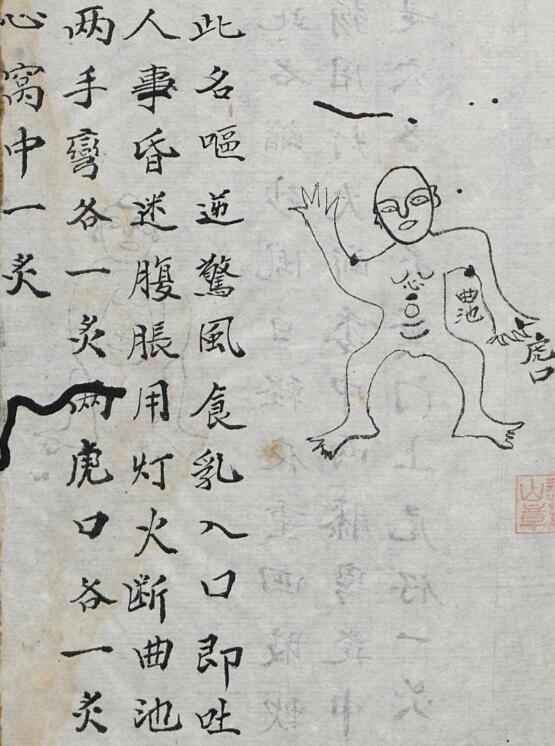 虎口
曲池
心
此名嘔逆驚風食乳入口即吐
人事昏迷腹脹用灯火断曲池
两手彎各一炙两虎口各一炙
心窩中一炙
山章